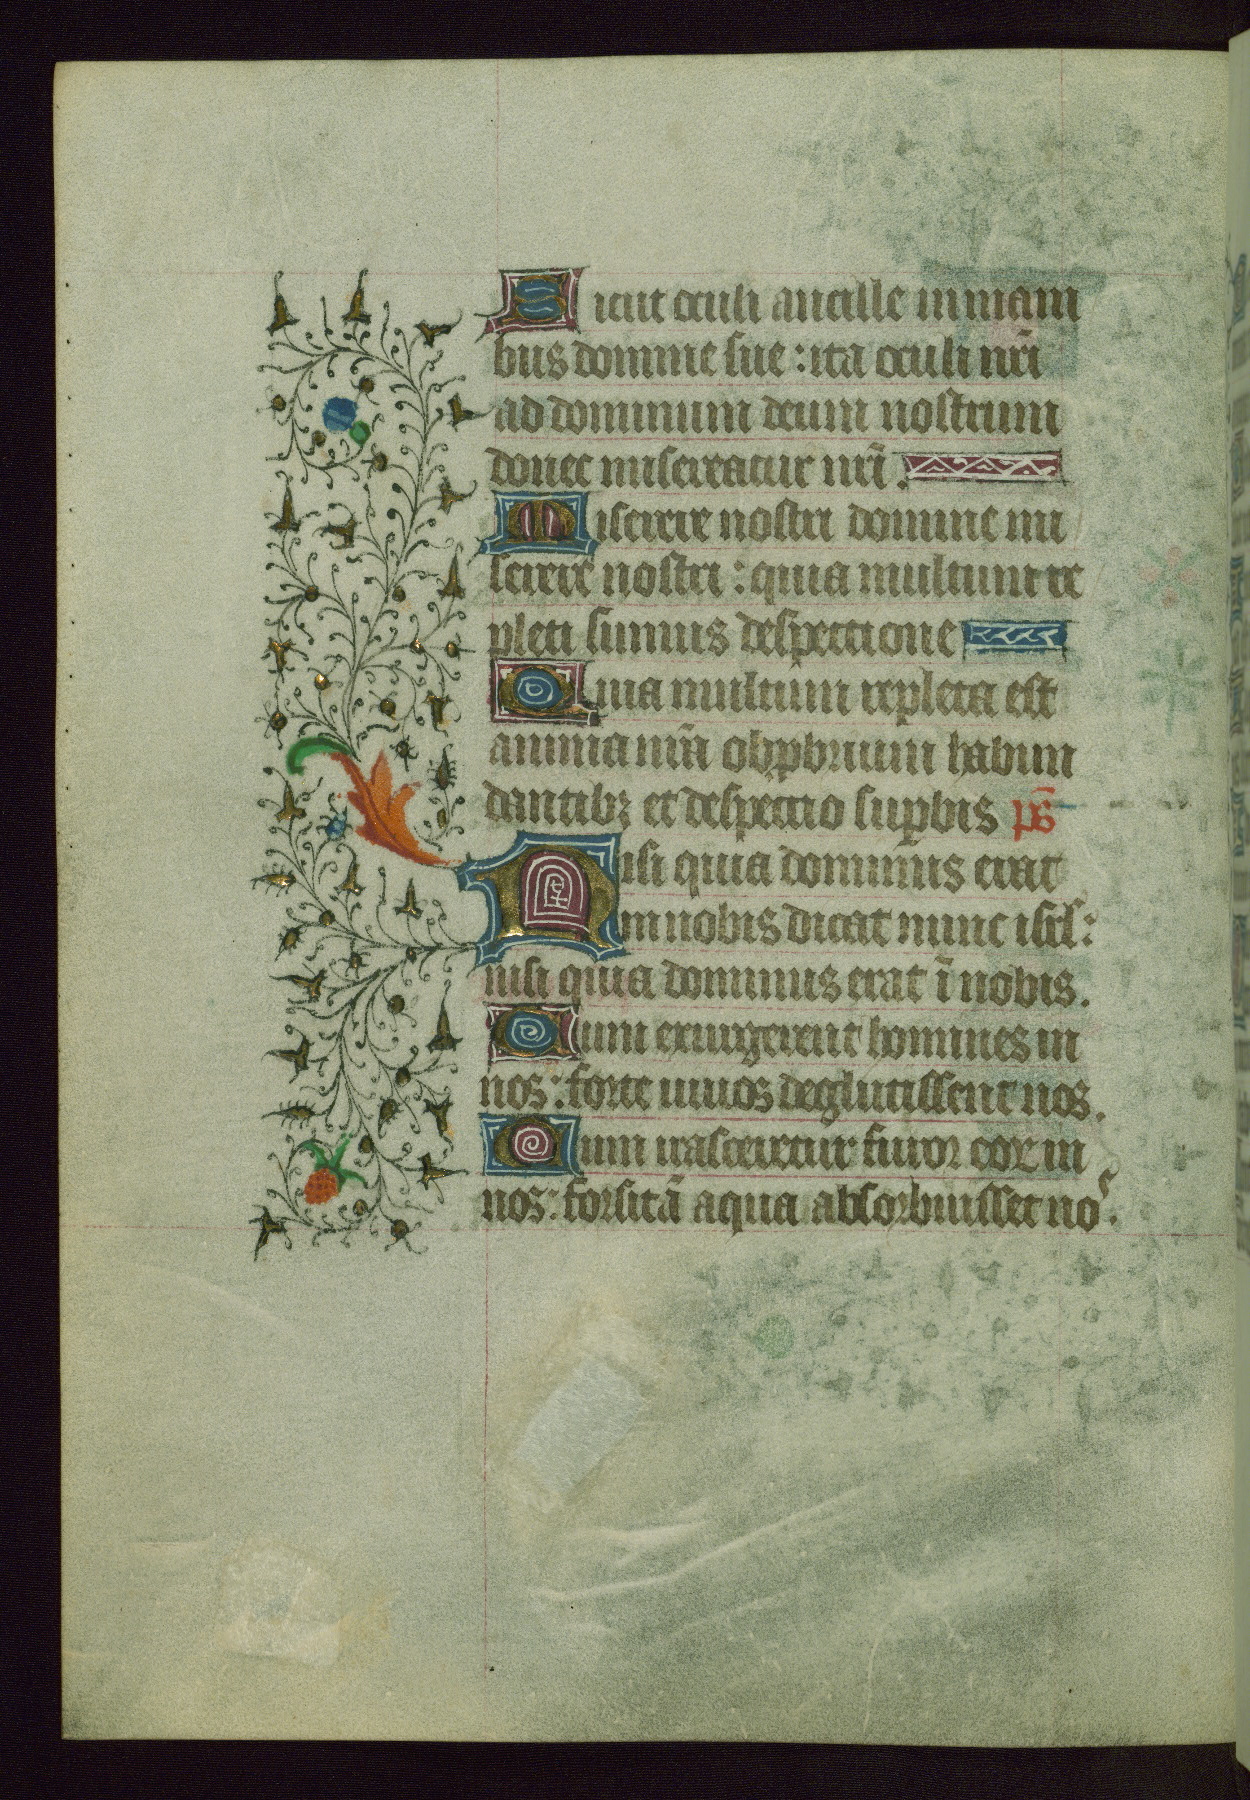 Sicut oculi ancille in mani
bus domine sue : ita oculi nr̃i
ad dominum deum nostrum
donec misereatur nr̃i .
Miserere nostri domine mi
serere nostri : quia multum re
pleti sumus despectione
Quia multum repleta est
anima nr̃a obp̱brium habun
dantibꝫ et despectio suꝑbis p̄s
Nisi quia dominus erat
in nobis dicat nunc isrl̄ :
nisi quia dominus erat ī nobis .
Cum exurgerent homines in
nos : forte uiuos deglutissent nos .
Cum irasceretur furor eoꝝ in
nos : forsitā aqua absorbuisset nos .